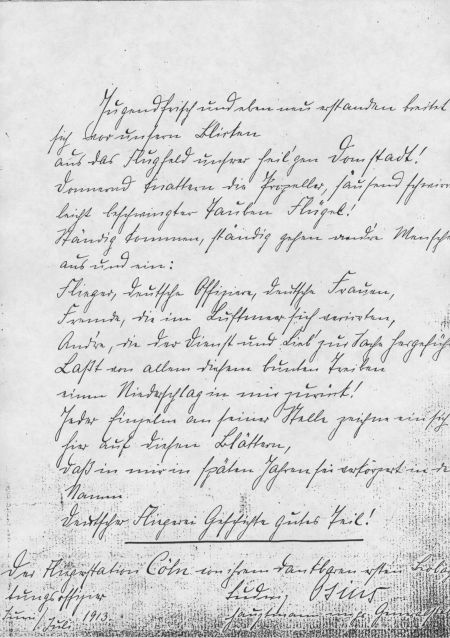 Jugendfrisch und eben neu erstanden breitet
sich vor unsern Blicken
aus das Flugfeld unsrer heil'gen Domstadt!
Donnernd knattern die Propeller, sausend schwirren
leicht beschwingter Tauben Flügel!
Ständig kommen, ständig gehen andre Menschen
aus und ein:
Flieger, deutsche Offiziere, deutsche Frauen,
Fremde, die im Luftmeer sich verirrten,
Andre, die der Dienst und Lieb' zur Sache hergeführt
Laßt von allem diesem bunten Treiben
einen Niederschlag in mir zurück!
Jeder Einzelne an seiner Stelle zeichne ein sich
hier auf diesen Blättern,
daß in mir in späten Jahren sei verkörpert in den
Namen
Deutscher Fliegerei Geschichte gutes Teil!
Der Fliegerstation Cöln von ihrem dankbaren ersten
offizier
Ludwig
Juni/Juli 1913. Hauptmann im